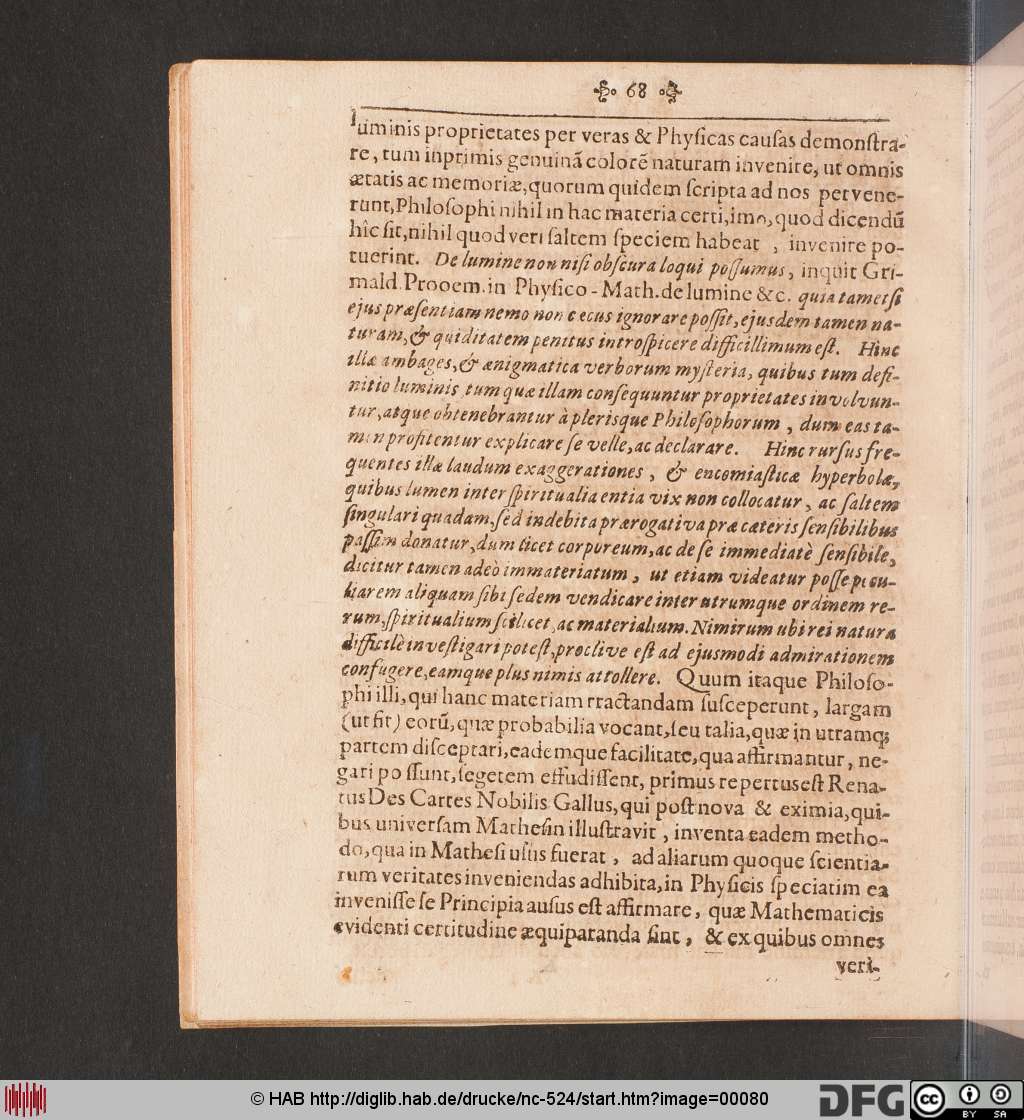 68
luminis proprietates per veras & Phyſicas cauſas demonſtra-
re, tum inprimis genuinã colorẽ naturam invenire, ut omnis
ætatis ac memoriæ, quorum quidem ſcripta ad nos pervene-
runt, Philoſophi nihil in hac materia certi, imo, quod dicendũ
hîc ſit, nihil quod veri ſaltem ſpeciem habeat , invenire po-
tuerint. De lumine non niſi obſcura loqui poſſumus, inquit Gri-
mald. Prooem. in Phyſico - Math. de lumine &c. quia tametſi
ejus præſentiam nemo non cæcus ignorare poſſit, ejusdem tamen na-
turam, & quiditatem penitus introſpicere difficillimum eſt. Hinc
illæ ambages, & ænigmatica verborum myſteria, quibus tum defi-
nitio luminis tum quæ illam conſequuntur proprietates involvun-
tur, atque obtenebrantur à plerisque Philoſophorum , dum eas ta-
men profitentur explicare ſe velle, ac declarare. Hinc rurſus fre-
quentes illæ laudum exaggerationes , & encomiaſticæ hyperbolæ,
quibus lumen inter ſpiritualia entia vix non collocatur , ac ſaltem
ſingulari quadam, ſed indebita prærogativa præ cæteris ſenſibilibus
paſſim donatur, dum licet corporeum, ac de ſe immediatè ſenſibile,
dicitur tamen adeò immateriatum , ut etiam videatur poſſe pecu-
liarem aliquam ſibi ſedem vendicare inter utrumque ordinem re-
rum, ſpiritualium ſcilicet, ac materialium. Nimirum ubi rei natura
difficilè inveſtigari poteſt, proclive eſt ad ejusmodi admirationem
confugere, eamque plus nimis attollere. Quum itaque Philoſo-
phi illi, qui hanc materiam rractandam ſuſceperunt , largam
(ut fit) eorũ, quæ probabilia vocant, ſeu talia, quæ in utramq;
partem diſceptari, eademque facilitate, qua affirmantur , ne-
gari poſſunt, ſegetem effudiſſent, primus repertus eſt Rena-
tus Des Cartes Nobilis Gallus, qui poſt nova & eximia, qui-
bus univerſam Matheſin illuſtravit , inventa eadem metho-
do, qua in Matheſi uſus fuerat , ad aliarum quoque ſcientia-
rum veritates inveniendas adhibita, in Phyſicis ſpeciatim ea
inveniſſe ſe Principia auſus eſt affirmare, quæ Mathematicis
evidenti certitudine æquiparanda ſint, & ex quibus omnes
veri-
© HAB http://diglib.hab.de/drucke/nc-524/start.htm?image=00080
DFG
cc BY SA